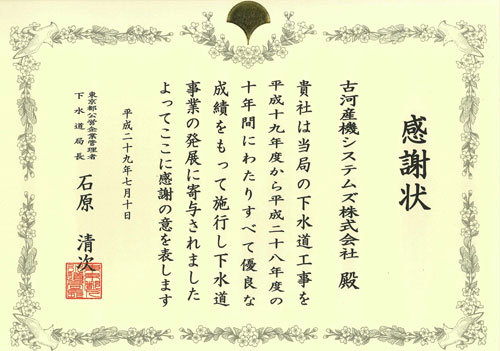 感謝状
古河産機システムズ株式会社 殿
貴社は当局の下水道工事を
平成十九年度から平成二十八年度の
十年間にわたりすべて優良な
成績をもって施行し下水道
事業の発展に寄与されました
よってここに感謝の意を表します
平成二十九年七月十日
東京都公営企業管理者
下水道局長
石原 清次